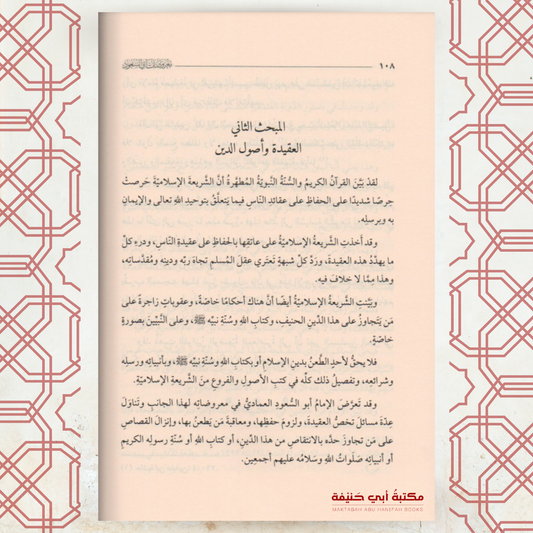 ١٠٨
المبحث الثاني
العقيدة وأصول الدين
لقدْ بَيَّنَ القرآنُ الكريمُ والسُّنَّةُ النَّبويَّةُ المُطهَّرةُ أنَّ الشَّريعةَ الإسلاميَّةَ حَرصتْ
حِرصًا شديدًا على الحفاظِ على عقائدِ النَّاسِ فيما يَتعلَّقُ بتوحيدِ اللهِ تعالى والإيمانِ
به وبرسلِه.
وقد أخذتِ الشَّريعةُ الإسلاميَّةُ على عاتقِها بالحفاظِ على عقيدةِ النَّاسِ، ودرءِ كلِّ
ما يهدِّدُ هذه العقيدةَ، وردِّ كلِّ شبهةٍ تَعتَري عقلَ المُسلمِ تجاهَ ربِّه ودينِه ومُقدَّساتِه،
وهذا مِمَّا لا خلافَ فيه.
وبيَّنتِ الشَّريعةُ الإسلاميَّةُ أيضًا أنَّ هناك أحكامًا خاصَّةً، وعقوباتٍ زاجرةً على
مَن يَتجاوزُ على هذا الدِّينِ الحنيفِ، وكتابِ اللهِ وسُنَّةِ نبيِّه ﷺ، وعلى النَّبيِّينَ بصورةٍ
خاصّةٍ.
فلا يحقُّ لأحدٍ الطَّعنُ بدينِ الإسلامِ أو بكتابِ اللهِ وسُنَّةِ نبيِّه ﷺ، وبأنبيائِه ورسلِه
وشرائعِه، وتفصيلُ ذلك كلِّه في كتبِ الأصولِ والفروعِ منَ الشَّريعةِ الإسلاميّةِ.
وقد تَعرَّضَ الإمامُ أبو السُّعودِ العماديُّ في معروضاتِه لهذا الجانبِ وتَناوَلَ
عِدَّةَ مسائلَ تخصُّ العقيدةَ، ولزومَ حفظِها، ومعاقبةَ مَن يَطعنُ بها، وإنزالَ القصاصِ
على مَن تجاوزَ حدَّه بالانتقاصِ من هذا الدِّينِ، أو كتابِ اللهِ أو سُنّةِ رسولِه الكريمِ
أو أنبيائِه صَلَواتُ اللهِ وسَلامُه عليهم أجمعِين.
مكتبة أبي حنيفة
MAKTABAH ABU HANIFAH BOOKS